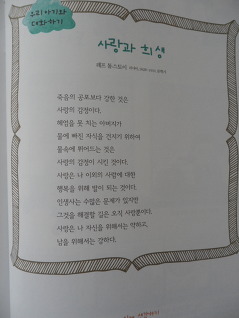 우리 아기와
대화하기
사랑과 희생
레프 톨스토이
죽음의 공포보다 강한 것은
사랑의 감정이다.
헤엄을 못 치는 아버지가
물에 빠진 자식을 건지기 위하여
물속에 뛰어드는 것은
사랑의 감정이 시킨 것이다.
사랑은 나 이외의 사람에 대한
행복을 위해 발이 되는 것이다.
인생사는 수많은 문제가 있지만
그것을 해결할 길은 오직 사랑뿐이다.
사랑은 나 자신을 위해서는 약하고,
남을 위해서는 강하다.